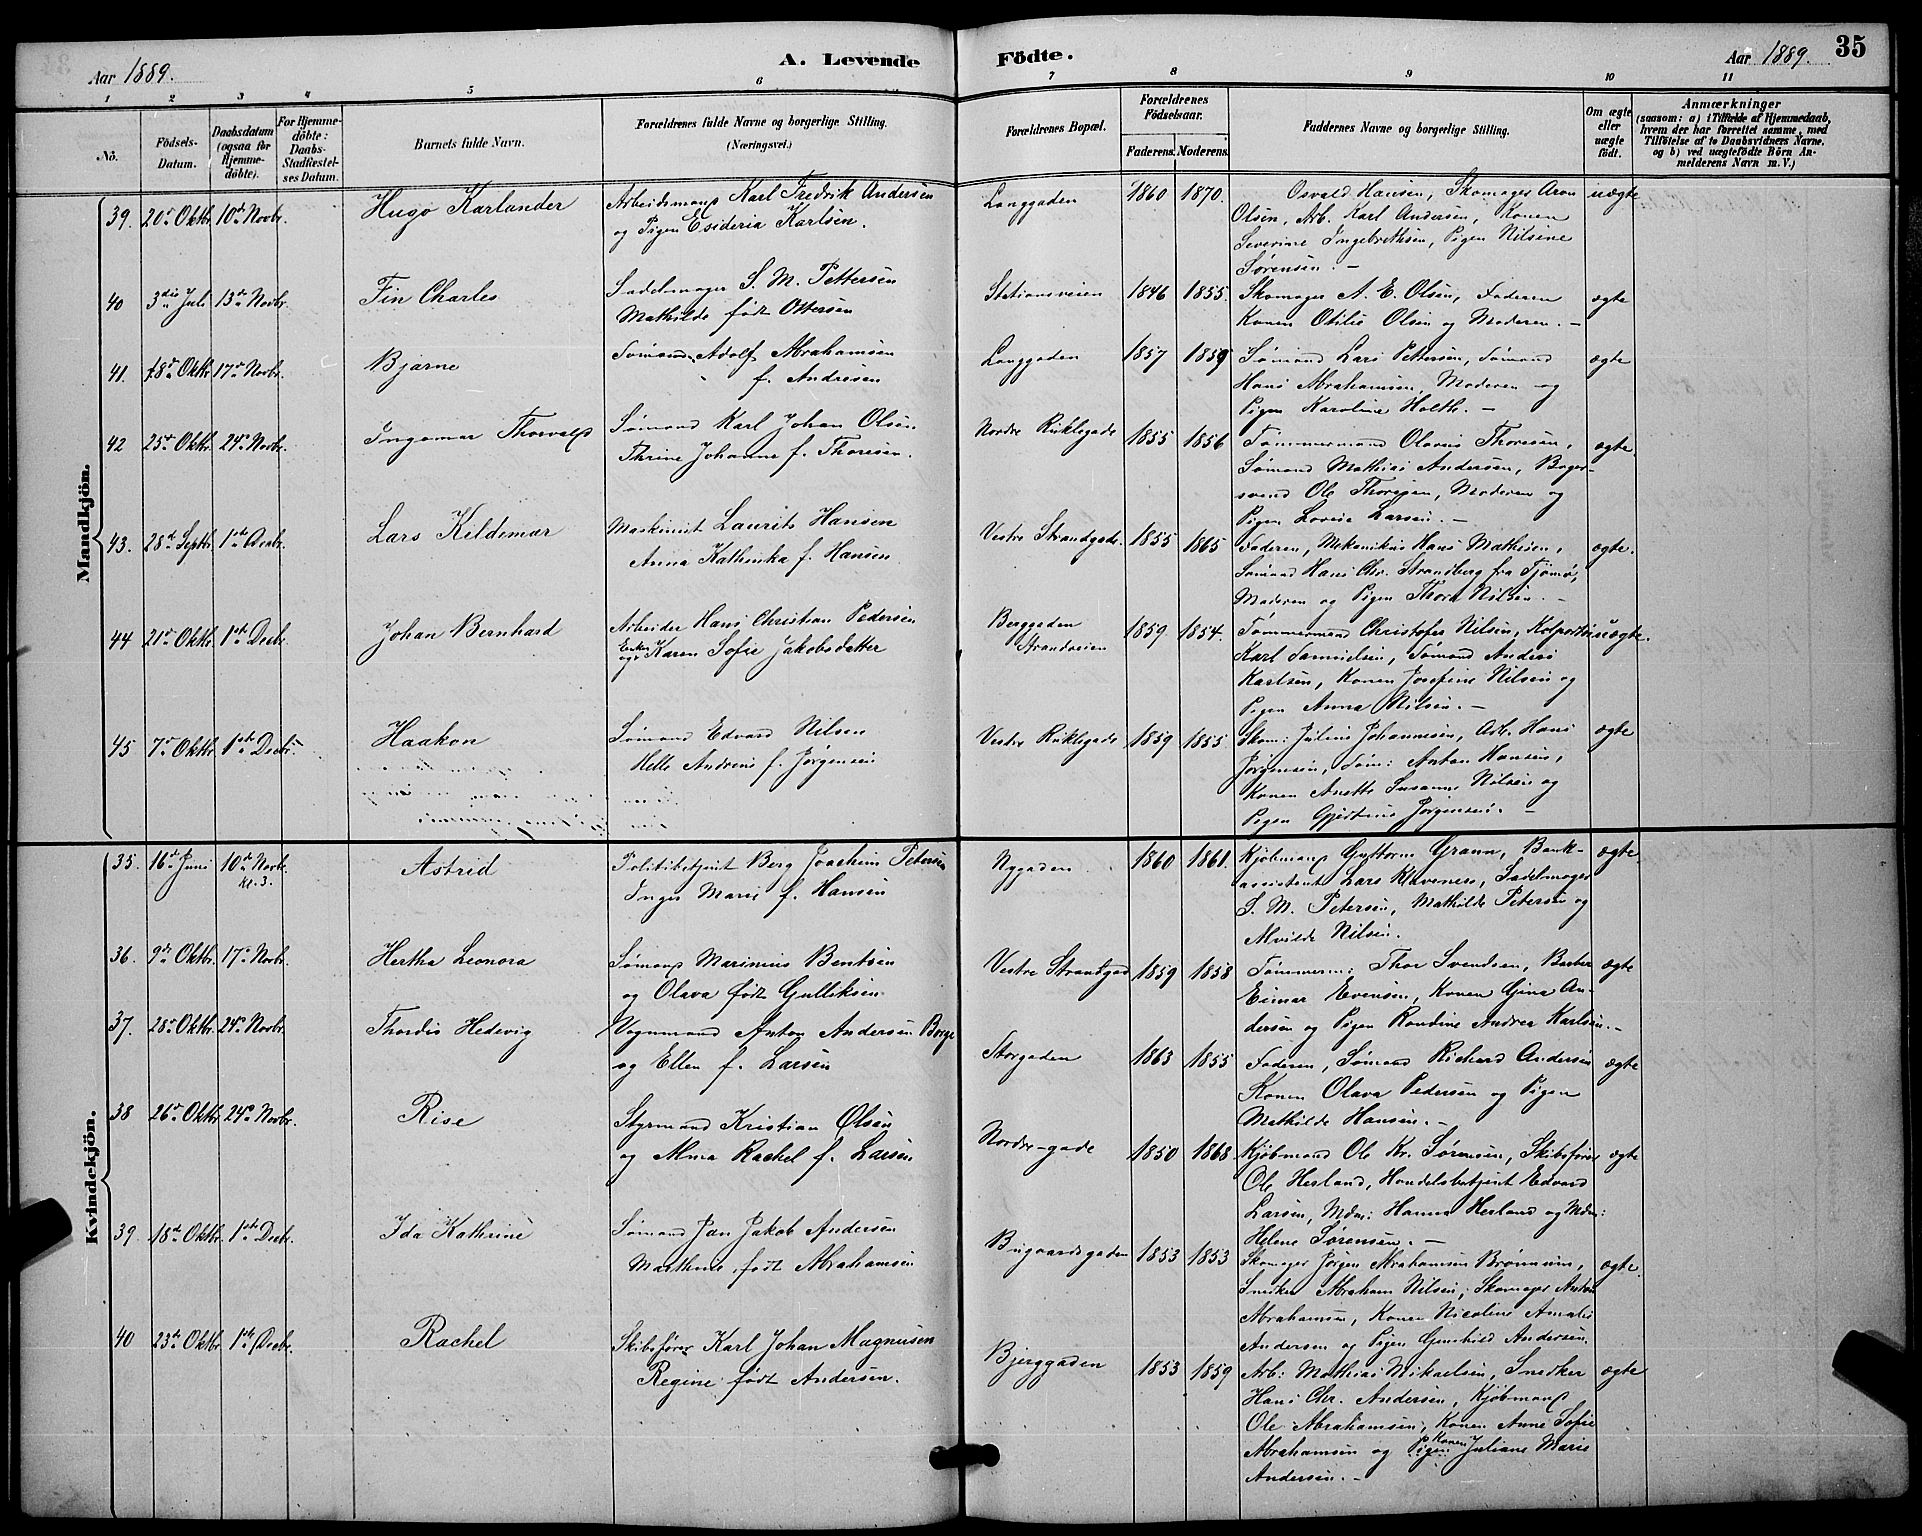 A. Levende Födte.
35
Aar 1889.
Aar 1889.
1 2 3 4 5 6 7 8 9 10 11
No.
Födsels-
Datum.
Daabsdatum
(ogsaa for
Hjemme-
döbte).
For Hjemme-
döbte:
Daabs-
Stadfæstel-
ses Datum.
Barnets fulde Navn.
Forældrenes fulde Navne og borgerlige Stilling.
(Næringsvei.)
Forældrenes Bopæl.
Forældrenes
Födselsaar.
Faderens. Moderens.
Faddernes Navne og borgerlige Stilling.
Om ægte
eller
uægte
födt.
Anmærkninger
(saasom: a) i Tilfælde af Hjemmedaab,
hvem der har forrettet samme, med
Tilföielse af to Daabsvidners Navne,
og b) ved uægtefödte Börn An-
melderens Navn m. V.)
Mandkjön.
39. 20de Oktbr. 10de Novbr. Hugo Karlander
Arbeidsmand Karl Fredrik Andersen
og Pigen Esideria Karlsen.
Langgaden 1860 1870.
Osvald Hansen, Skomager Aron
Olsen, Arb. Karl Andersen, Konen
Severine Ingebrethsen, Pigen Nilsine
Sørensen. -
uægte
40 3die Juli 13de Novbr. Fin Charles
Sadelmager S. M. Pettersen
Mathilde født Ottersen
Stationsveien 1846 1855.
Skomager A. E. Olsen, Faderen
Konen Otilie Olsen og Moderen. -
ægte
41. 18de Oktbr. 17de Novbr. Bjarne
Sømand Adolf Abrahamsen
f. Andresen
Langgaden 1857 1859
Sømand Lars Pettersen, Sømand
Hans Abrahamsen, Moderen og
Pigen Karoline Holth. -
ægte
42 25de Oktbr. 24de Novbr. Ingomar Thorvald
Sømand Karl Johan Olsen
Thrine Johanne f. Thoresen.
Nordre 1855 1856
Tømmermand Olaves Thoresen,
Sømand Mathias Andersen, Bager-
svend Ole Thoresen, Moderen og
Pigen Lovise Larsen. -
ægte.
43. 28de Septbr. 1ste Decbr. Lars Kildemar
Maskinist Laurits Hansen
Anna Kathinka f. Hansen
Vestre Strandgade. 1855 1865
Faderen, Mekanikus Hans Mathisen,
Sømand Hans Chr. Strandberg fra Tjömö,
Moderen og Pigen Thora Nilsen. -
ægte.
44 21de Oktbr. 1ste Decbr. Johan Bernhard
Arbeider Hans Christian Pedersen
og Enken Karen Sofie Jakobsdatter
Berggaden
Strandveien
1859 1854.
Tømmermand Christofer Nilsen, Kolportør
Karl Samuelsen, Sømand Anders
Karlsen, Konen Josefine Nilsen og
Pigen Anna Nilsen. -
uægte.
45 7de Oktbr. 1ste Decbr. Haakon
Sømand Edvard Nilsen
Helle Andrine f. Jørgensen
Vestre 1859 1855
Skom: Julius Johannesen, Arb. Hans
Jørgensen, Søm: Anton Hansen,
Konen Anette Susanne Nilsen og
Pigen Gjertine Jørgensen. -
ægte
Kvindekjön.
35. 16de Juni 10de Novbr. Kl. 3. Astrid
Politibetjent Berg Joachim Petersen
Inger Marie f. Hansen
Nygaden 1860 1861.
Kjøbmand Guttorm Grann, Bank-
assistent Lars Klavenes, Sadelmager
S. M. Petersen, Mathilde Petersen og
Alvilde Nilsen.
ægte.
36. 9de Oktbr. 17de Novbr. Hertha Leonora
Sømand Marinius Bentsen
og Olava født Gulliksen.
Vestre Strandgad 1859 1858
Tømmerm: Thor Svendsen, Barber
Einar Evensen, Konen Gina An-
dersen og Pigen Randine Andrea Karlsen. -
ægte
37. 28de Oktbr. 24de Novbr. Thordis Hedevig
Vognmand Anton Andersen Borge
og Ellen f. Larsen
Storgaden 1863 1855
Faderen, Sømand Richard Andersen
Konen Olava Pedersen og Pigen
Mathilde Hansen. -
ægte
38 26de Oktbr. 24de Novbr. Rise
Styrmand Kristian Olsen
og Alma Rachel f. Larsen
Nordre-gade 1850 1868
Kjøbmand Ole Kr. Sørensen, Skibsfører
Ole Herland, Handelsbetjent Edvard
Larsen, Mdm: Hanna Herland og Mdm:
Helene Sørensen. -
ægte
39 18de Oktbr. 1ste Decbr. Ida Kathrine
Sømand Jan Jakob Andersen
Marthine født Abrahamsen
Bugaardsgaden 1853 1853
Skomager Jørgen Abrahamsen Brønnum,
Snedker Abraham Nilsen, Skomager Anton
Abrahamsen, Konen Nicoline Amalie
Andersen og Pigen Gunhild Andersen.
ægte.
40 23de Oktbr. 1ste Decbr. Rachel
Skibsfører Karl Johan Magnusen
Regine født Andersen.
Bjerggaden 1853 1859
Arb: Mathias Mikaelsen, Snedker
Hans Chr. Andersen, Kjøbmand
Ole Abrahamsen, Konen Anne Sofie
Abrahamsen og Pigen Konen Juliane Marie
Andersen. -
ægte